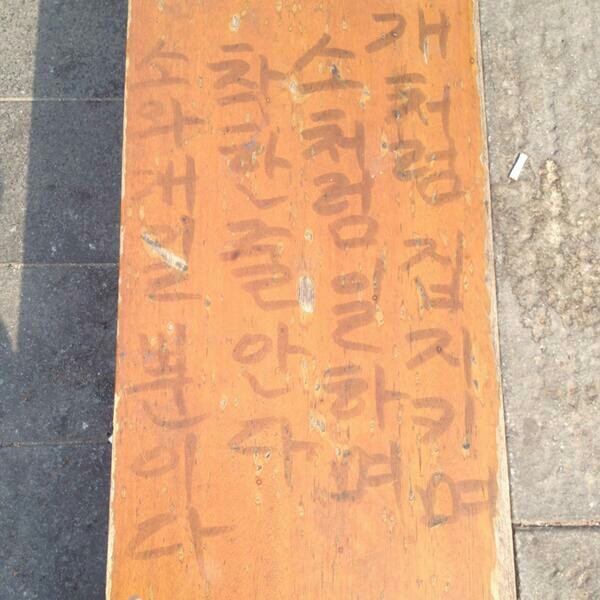 개처럼 집지키며
소처럼 일하며
착한줄 안다
소와개일뿐이다